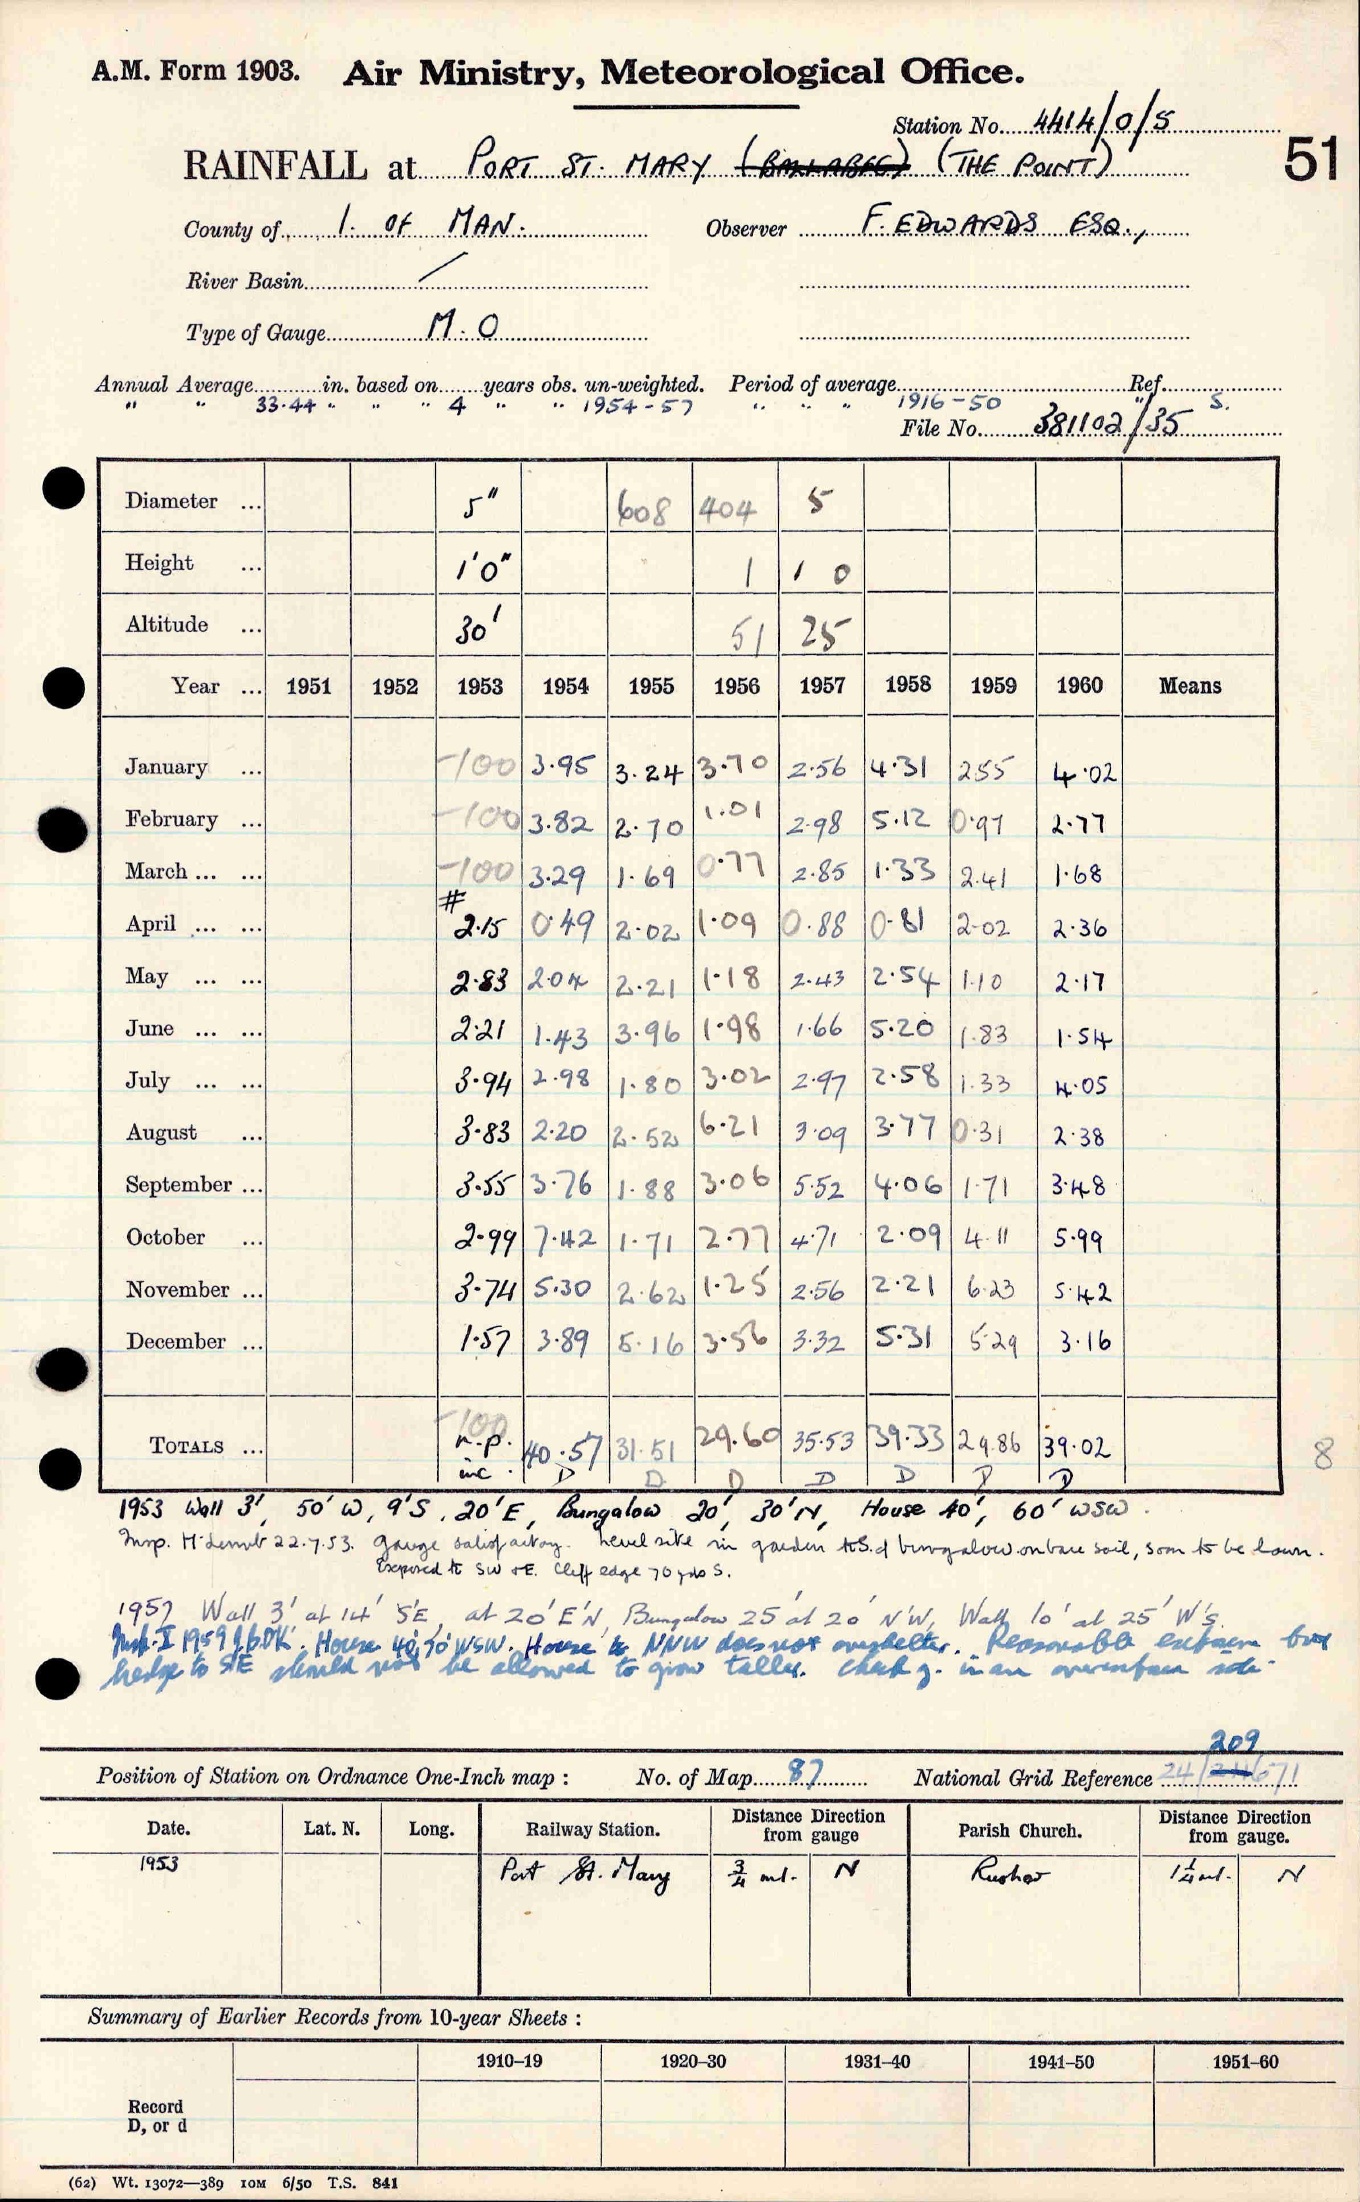 A.M. Form 1903. Air Ministry, Meteorological Office.
Station No. 4414/0/5
51
RAINFALL at PORT ST. MARY (BALLABEG) (THE POINT)
County of I. OF MAN. Observer F. EDWARDS ESQ.,
River Basin /
Type of Gauge M.O
Annual Average in. based on years obs. un-weighted. Period of average Ref.
" " 33.44 " " " 4 " " 1954-57 " " " 1916-50 " S.
File No. 381102/35
Diameter ... 5" 608 404 5
Height ... 1'0" 1 1 0
Altitude ... 30' 51 25
Year ... 1951 1952 1953 1954 1955 1956 1957 1958 1959 1960 Means
January ... -100 3.95 3.24 3.70 2.56 4.31 2.55 4.02
February ... -100 3.82 2.70 1.01 2.98 5.12 0.97 2.77
March ... ... -100 3.29 1.69 0.77 2.85 1.33 2.41 1.68
April ... ... # 2.15 0.49 2.02 1.09 0.88 0.81 2.02 2.36
May ... ... 2.83 2.04 2.21 1.18 2.43 2.54 1.10 2.17
June ... ... 2.21 1.43 3.96 1.98 1.66 5.20 1.83 1.54
July ... ... 3.94 2.98 1.80 3.02 2.97 2.58 1.33 4.05
August ... 3.83 2.20 2.52 6.21 3.09 3.77 0.31 2.38
September ... 3.55 3.76 1.88 3.06 5.52 4.06 1.71 3.48
October ... 2.99 7.42 1.71 2.77 4.71 2.09 4.11 5.99
November ... 3.74 5.30 2.62 1.25 2.56 2.21 6.23 5.42
December ... 1.57 3.89 5.16 3.56 3.32 5.31 5.29 3.16
-100
TOTALS ... n.p. 40.57 31.51 29.60 35.53 39.33 29.86 39.02
inc. D D D D D D D
8
1953 Wall 3', 50' W, 9'S, 20'E, Bungalow 20', 30'N, House 40', 60' WSW.
Insp. 22.7.53. Gauge satisfactory. Level site in garden to S. of bungalow on bare soil, soon to be lawn.
Exposed to SW & E. Cliff edge 70 yds S.
1957 Wall 3' at 14' S'E, at 20' E'N, Bungalow 25' at 20' N'W, Wall 10' at 25' W's.
Insp. I 1959 House 40', 70' WSW. House to NNW does not overshelter. Reasonable exposure but
hedge to S'E should not be allowed to grow taller. Check g. in an overexposed site.
209
Position of Station on Ordnance One-Inch map : No. of Map 87 National Grid Reference 24/ 671
Date. Lat. N. Long. Railway Station. Distance Direction from gauge Parish Church. Distance Direction from gauge.
1953 Port St. Mary 3/4 ml. N Rushen 1 1/4 ml. N
Summary of Earlier Records from 10-year Sheets :
1910–19 1920–30 1931–40 1941–50 1951–60
Record
D, or d
(62) Wt. 13072—389 10M 6/50 T.S. 841